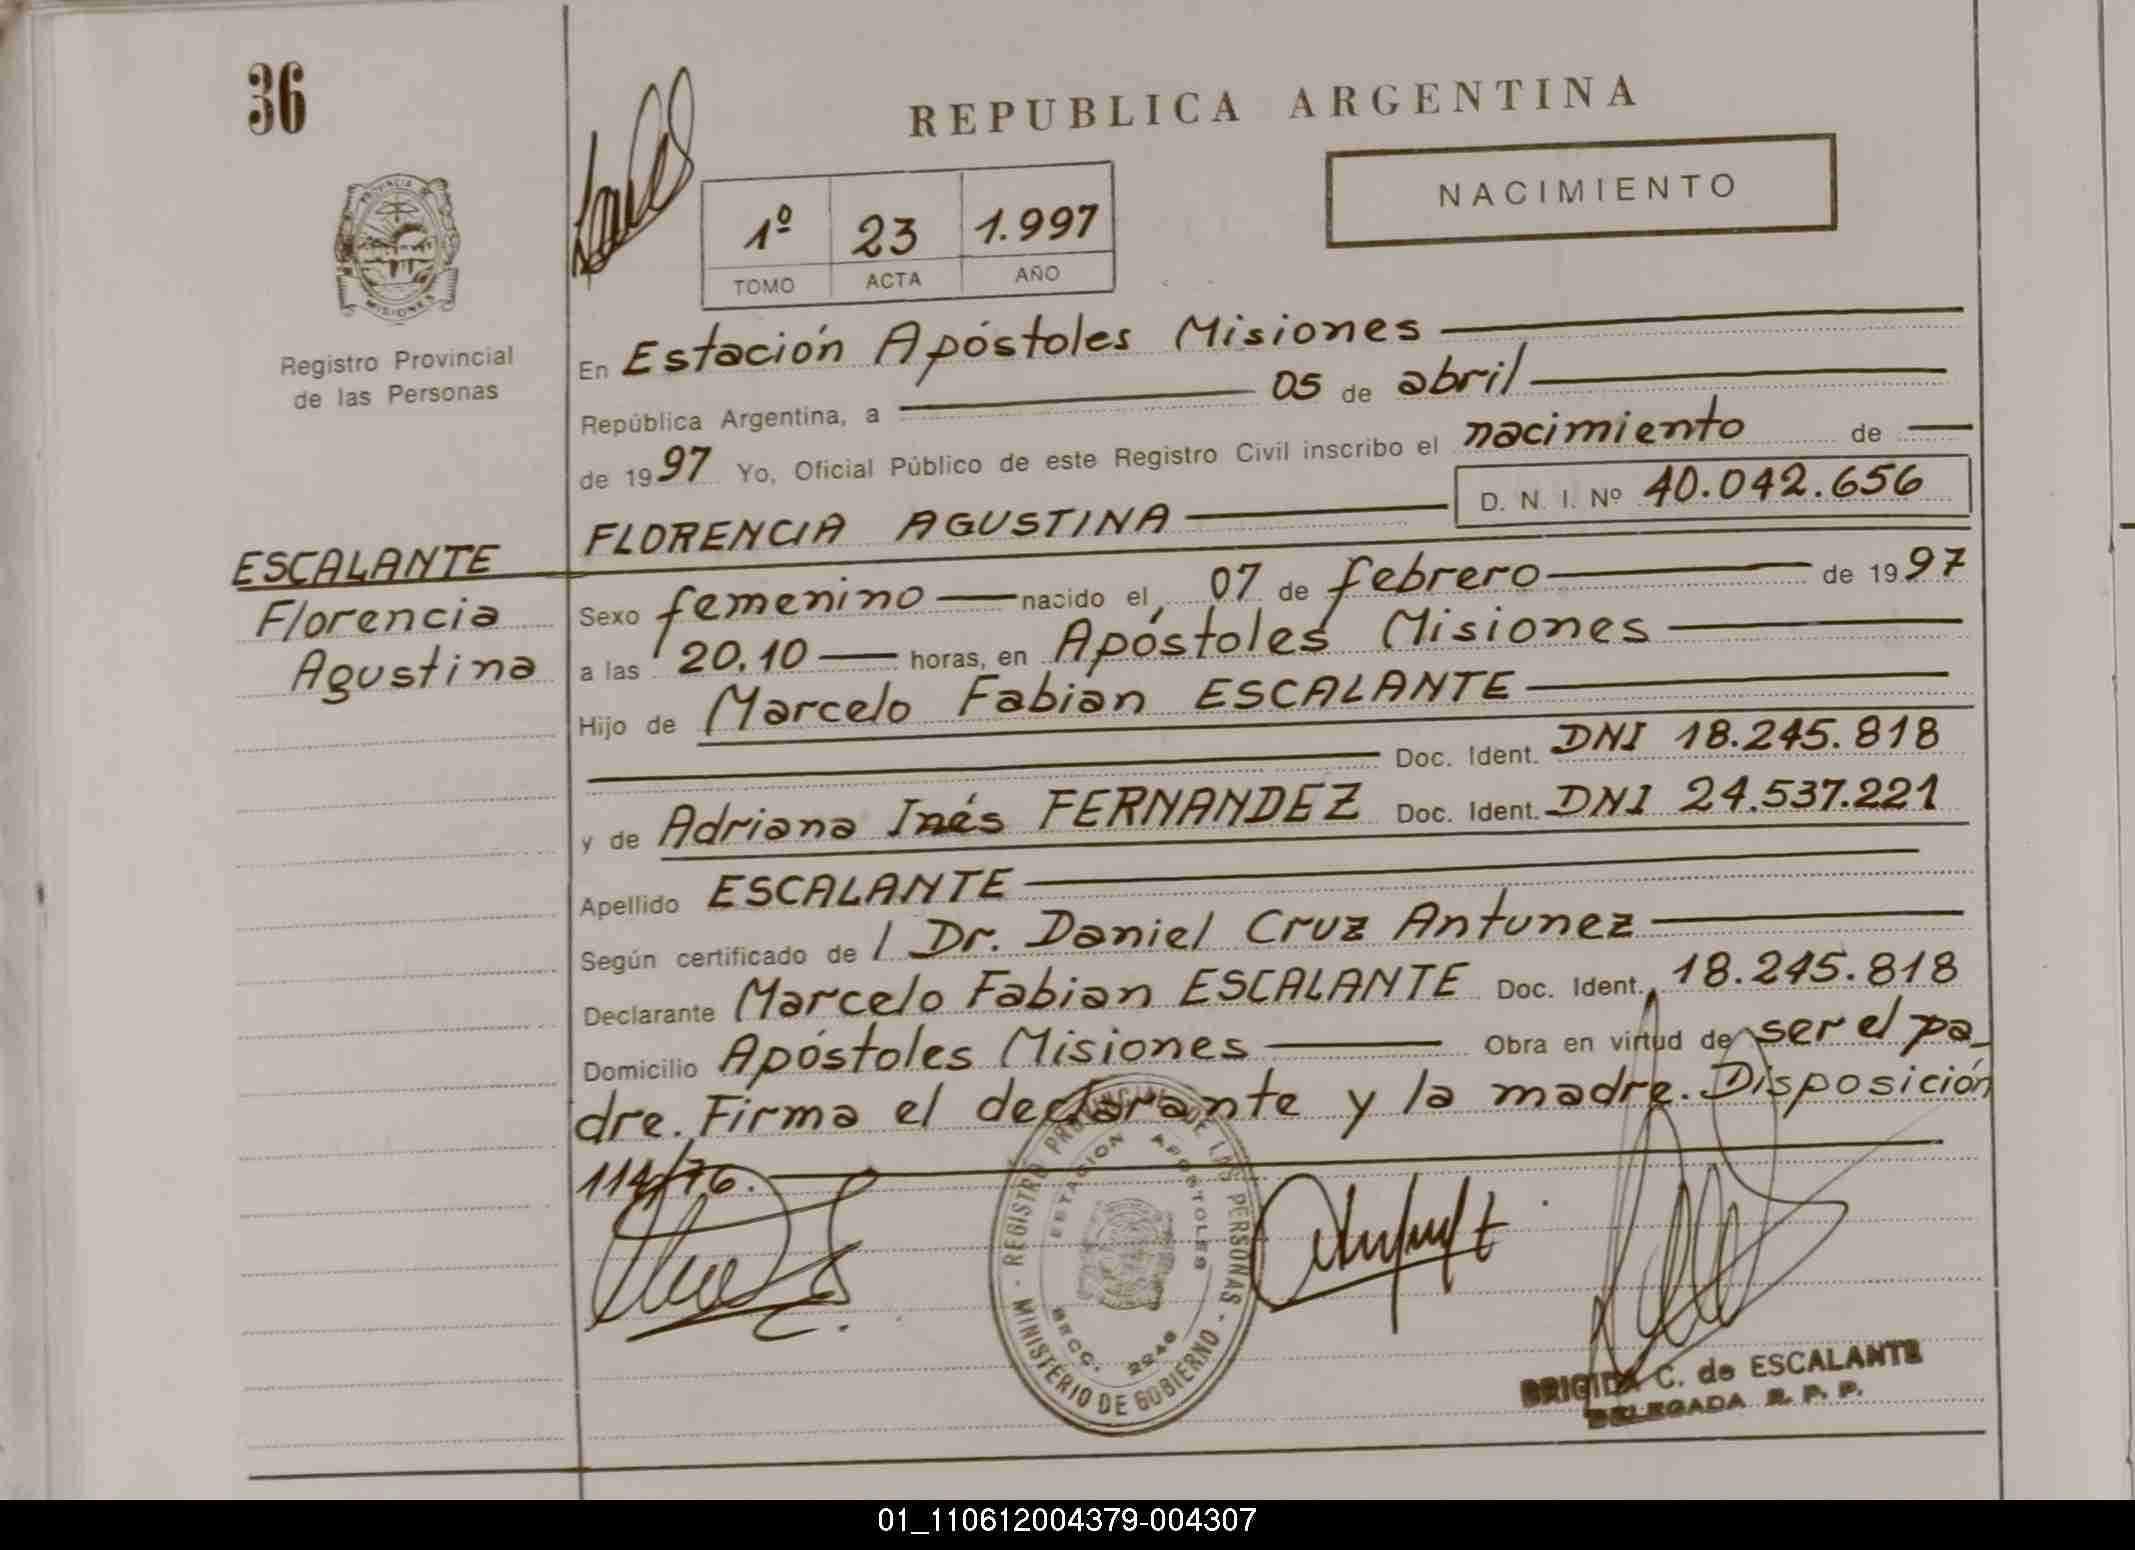 36
REPUBLICA ARGENTINA
NACIMIENTO
1º 23 1.997
TOMO ACTA AÑO
PROVINCIA
MISIONES
Registro Provincial
de las Personas
En Estación Apóstoles Misiones
República Argentina, a 05 de abril
de 1997 Yo, Oficial Público de este Registro Civil inscribo el nacimiento de
D. N. I. Nº 40.042.656
FLORENCIA AGUSTINA
ESCALANTE
Florencia
Agustina
Sexo femenino nacido el, 07 de febrero de 1997
a las 20.10 horas, en Apóstoles Misiones
Hijo de Marcelo Fabian ESCALANTE
Doc. Ident. DNI 18.245.818
y de Adriana Inés FERNANDEZ Doc. Ident. DNI 24.537.221
Apellido ESCALANTE
Según certificado de l Dr. Daniel Cruz Antunez
Declarante Marcelo Fabian ESCALANTE Doc. Ident. 18.245.818
Domicilio Apóstoles Misiones Obra en virtud de ser el pa_
dre. Firma el declarante y la madre. Disposición
114/76.
- REGISTRO PROVINCIAL DE LAS PERSONAS -
MINISTERIO DE GOBIERNO
ESTACION APOSTOLES
SECC. 2246
BRIGIDA C. de ESCALANTE
DELEGADA R. P. P.
01_110612004379-004307